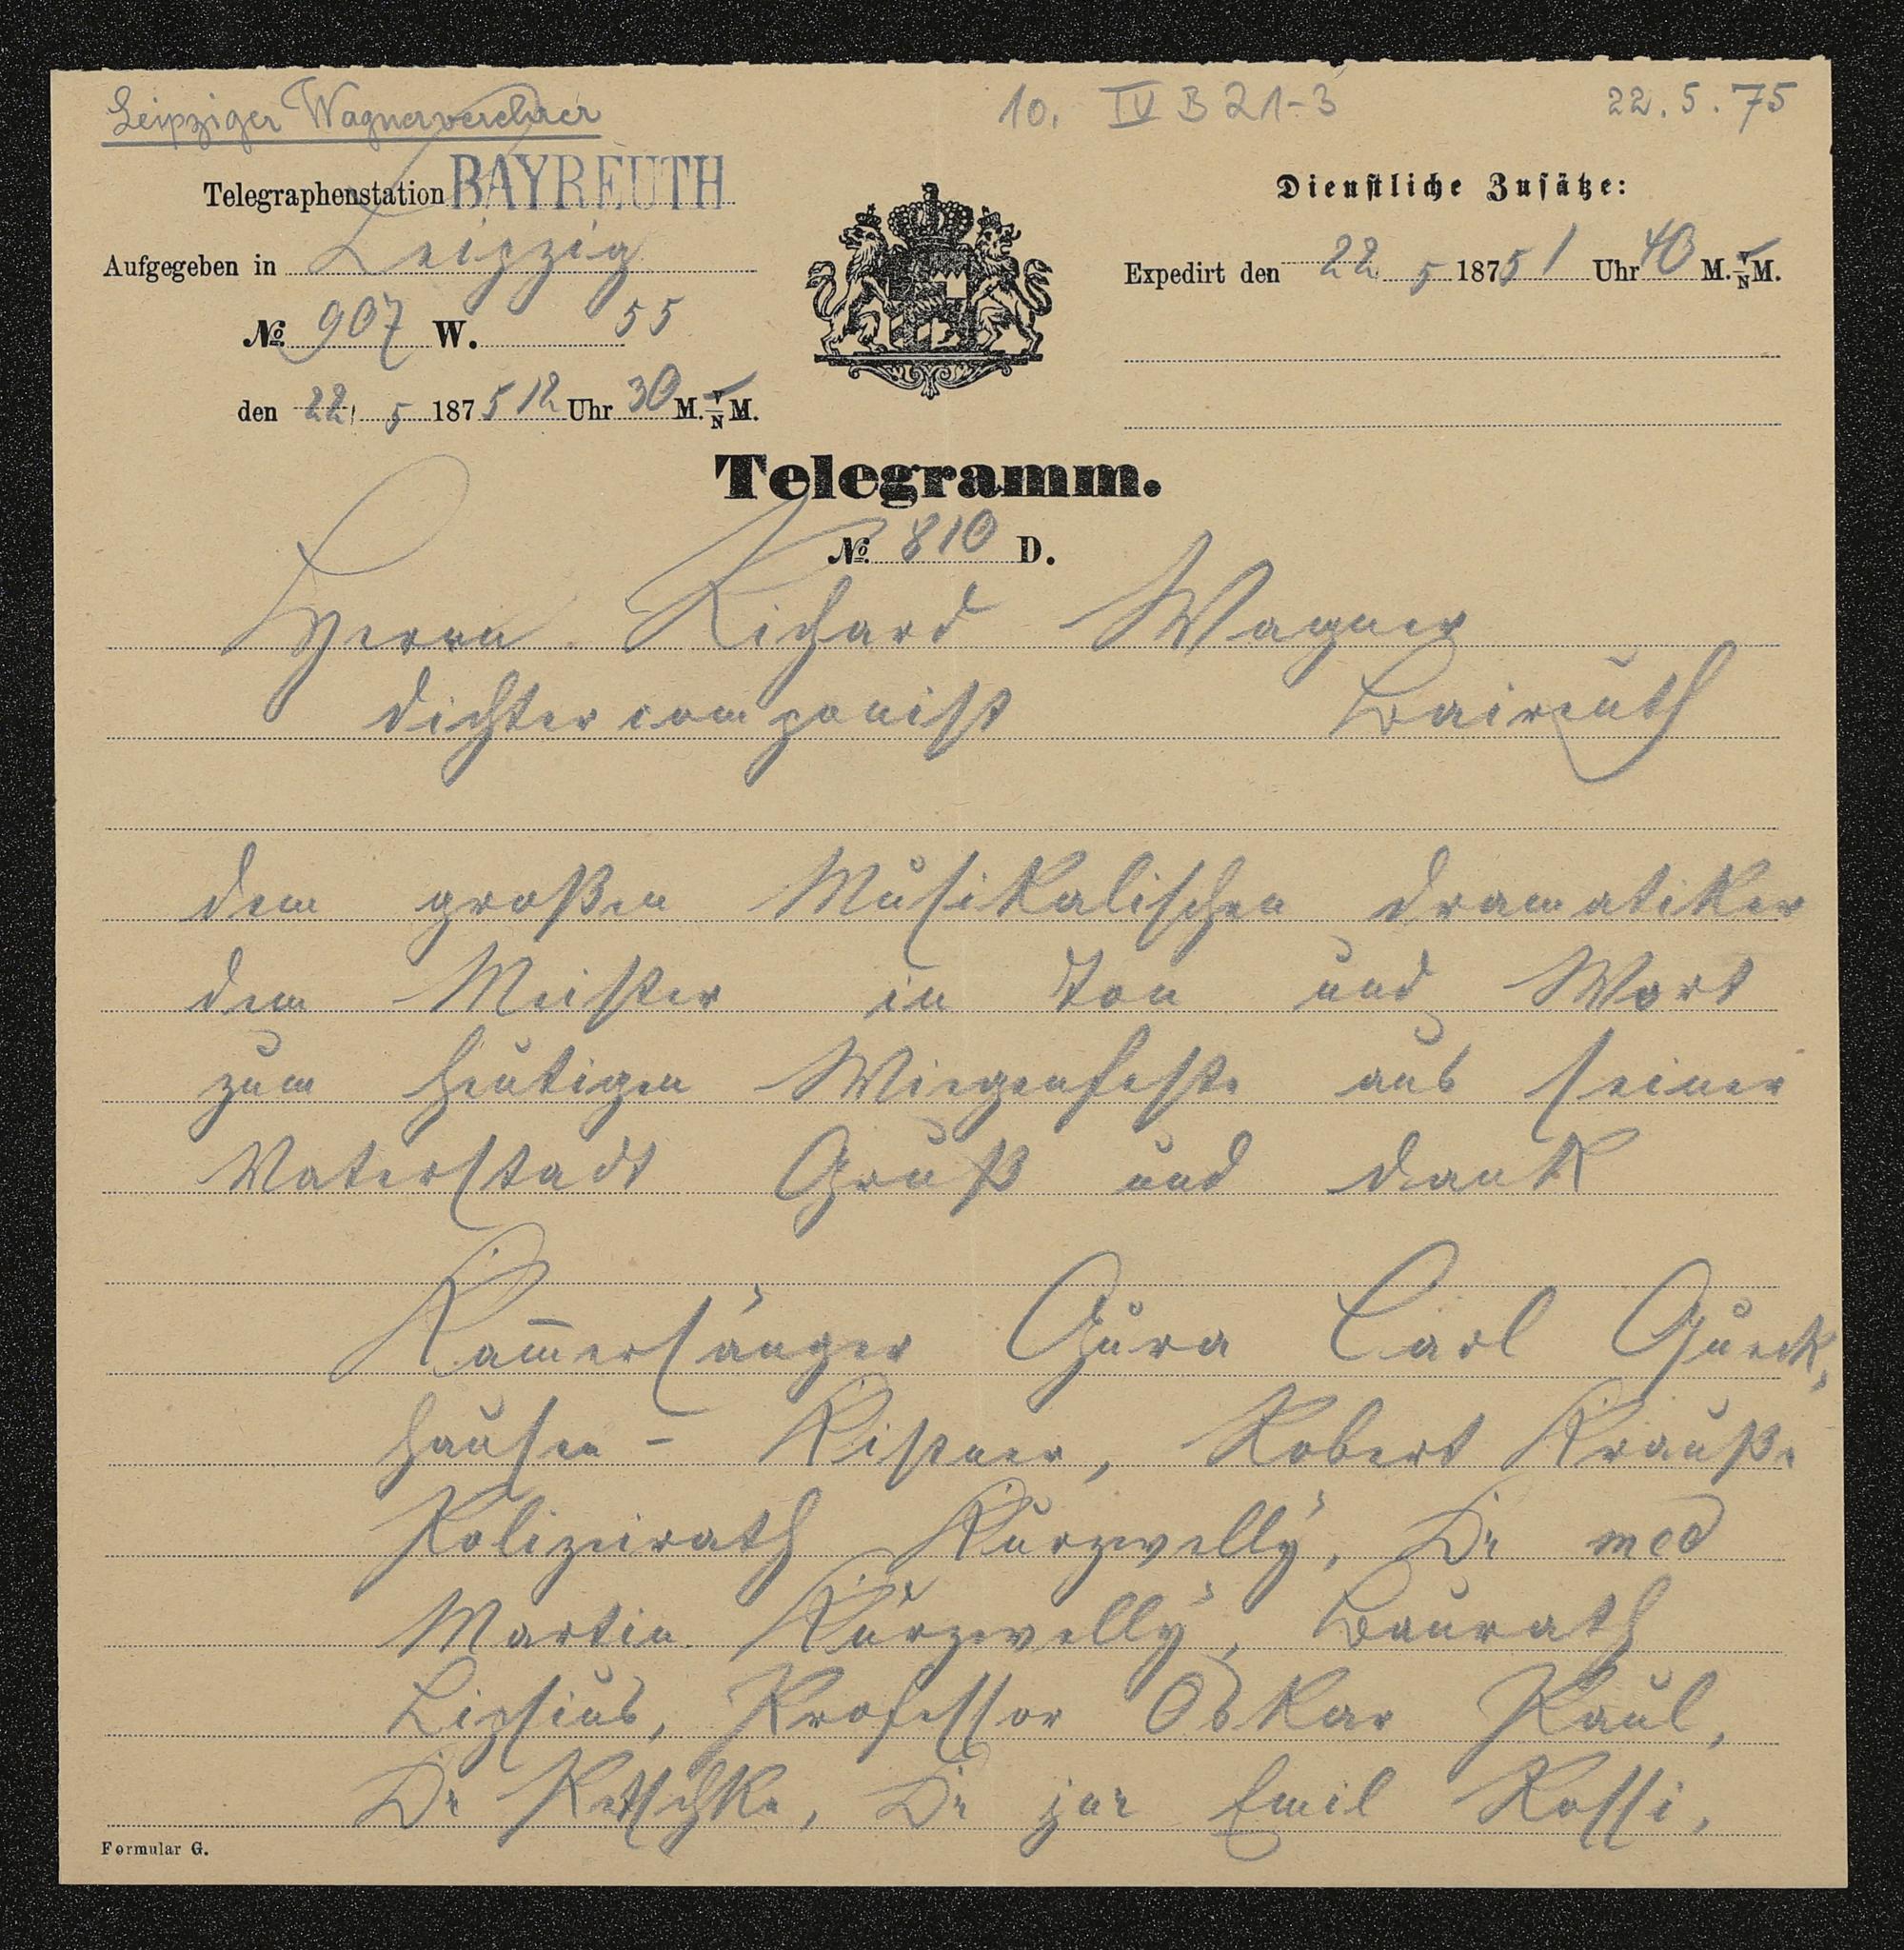 Leipziger Wagnerverehrer 10. IV B 21-3 22.5.75
Telegraphenstation BAYREUTH
Dienstliche Zusätze:
Aufgegeben in Leipzig
Expedirt den 22 5 1875 1 Uhr 40 M. V/N M.
No. 907 W. 55
den 22 5 1875 12 Uhr 30 M. V/N M.
Telegramm.
No. 810 D.
Herrn Richard Wagner
dichtercomponist Baireuth
dem großen Musikalischen dramatiker
dem Meister in Ton und Wort
zum heutigen Wiegenfeste aus seiner
Vaterstadt Gruß und dank
Kam̅ersänger Gura Carl Gurck,
hausen - Kistner, Robert Krauße
Polizeirath Kurzwelly, Dr med
Martin Kurzwelly, Baurath
Lipsius, Professor Oskar Paul,
Dr Petschke, Dr jur Emil Rossi,
Formular G.